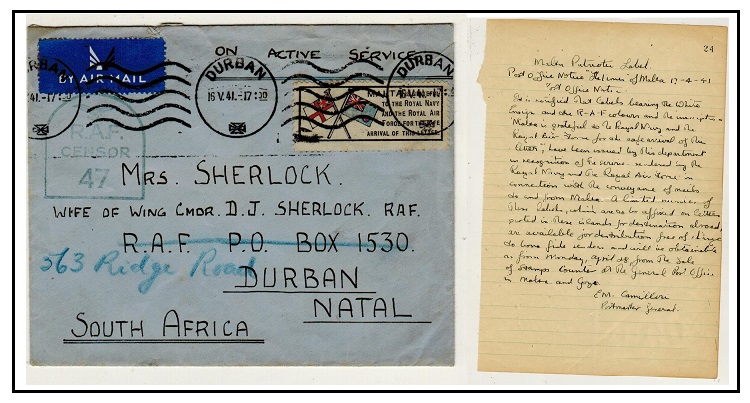 ON ACTIVE SERVICE
BY AIR MAIL
DURBAN
41.-17:30
DURBAN
16 V.41.-17:30
MALTA
TO THE ROYAL NAVY
AND THE ROYAL AIR
FORCE FOR THE SAFE
ARRIVAL OF THIS LETTER
R.A.F.
CENSOR
47
MRS. SHERLOCK.
WIFE OF WING CMDR. D.J. SHERLOCK. RAF.
R.A.F. P.O. BOX 1530.
563 Ridge Road
DURBAN
NATAL
SOUTH AFRICA
24
Malta Patriotic Label.
Post Office Notice "Times of Malta" 17-4-41
Post Office Notice
It is notified that labels bearing the White
Ensign and the R-A-F colours and the inscription
Malta is grateful to the Royal Navy and the
Royal Air Force for the safe arrival of this
letter", have been issued by this department
in recognition of the services rendered by the
Royal Navy and the Royal Air Force in
connection with the conveyance of mails
to and from Malta. A limited number of
these labels, which are to be affixed on letters
posted in these islands for destination abroad,
are available for distribution free of charge
to bona fide senders and will be obtainable
as from Monday, April 28, from the Sale
of Stamps Counter at the General Post Office
in Malta and Gozo.
E.M. Camilleri
Postmaster General.